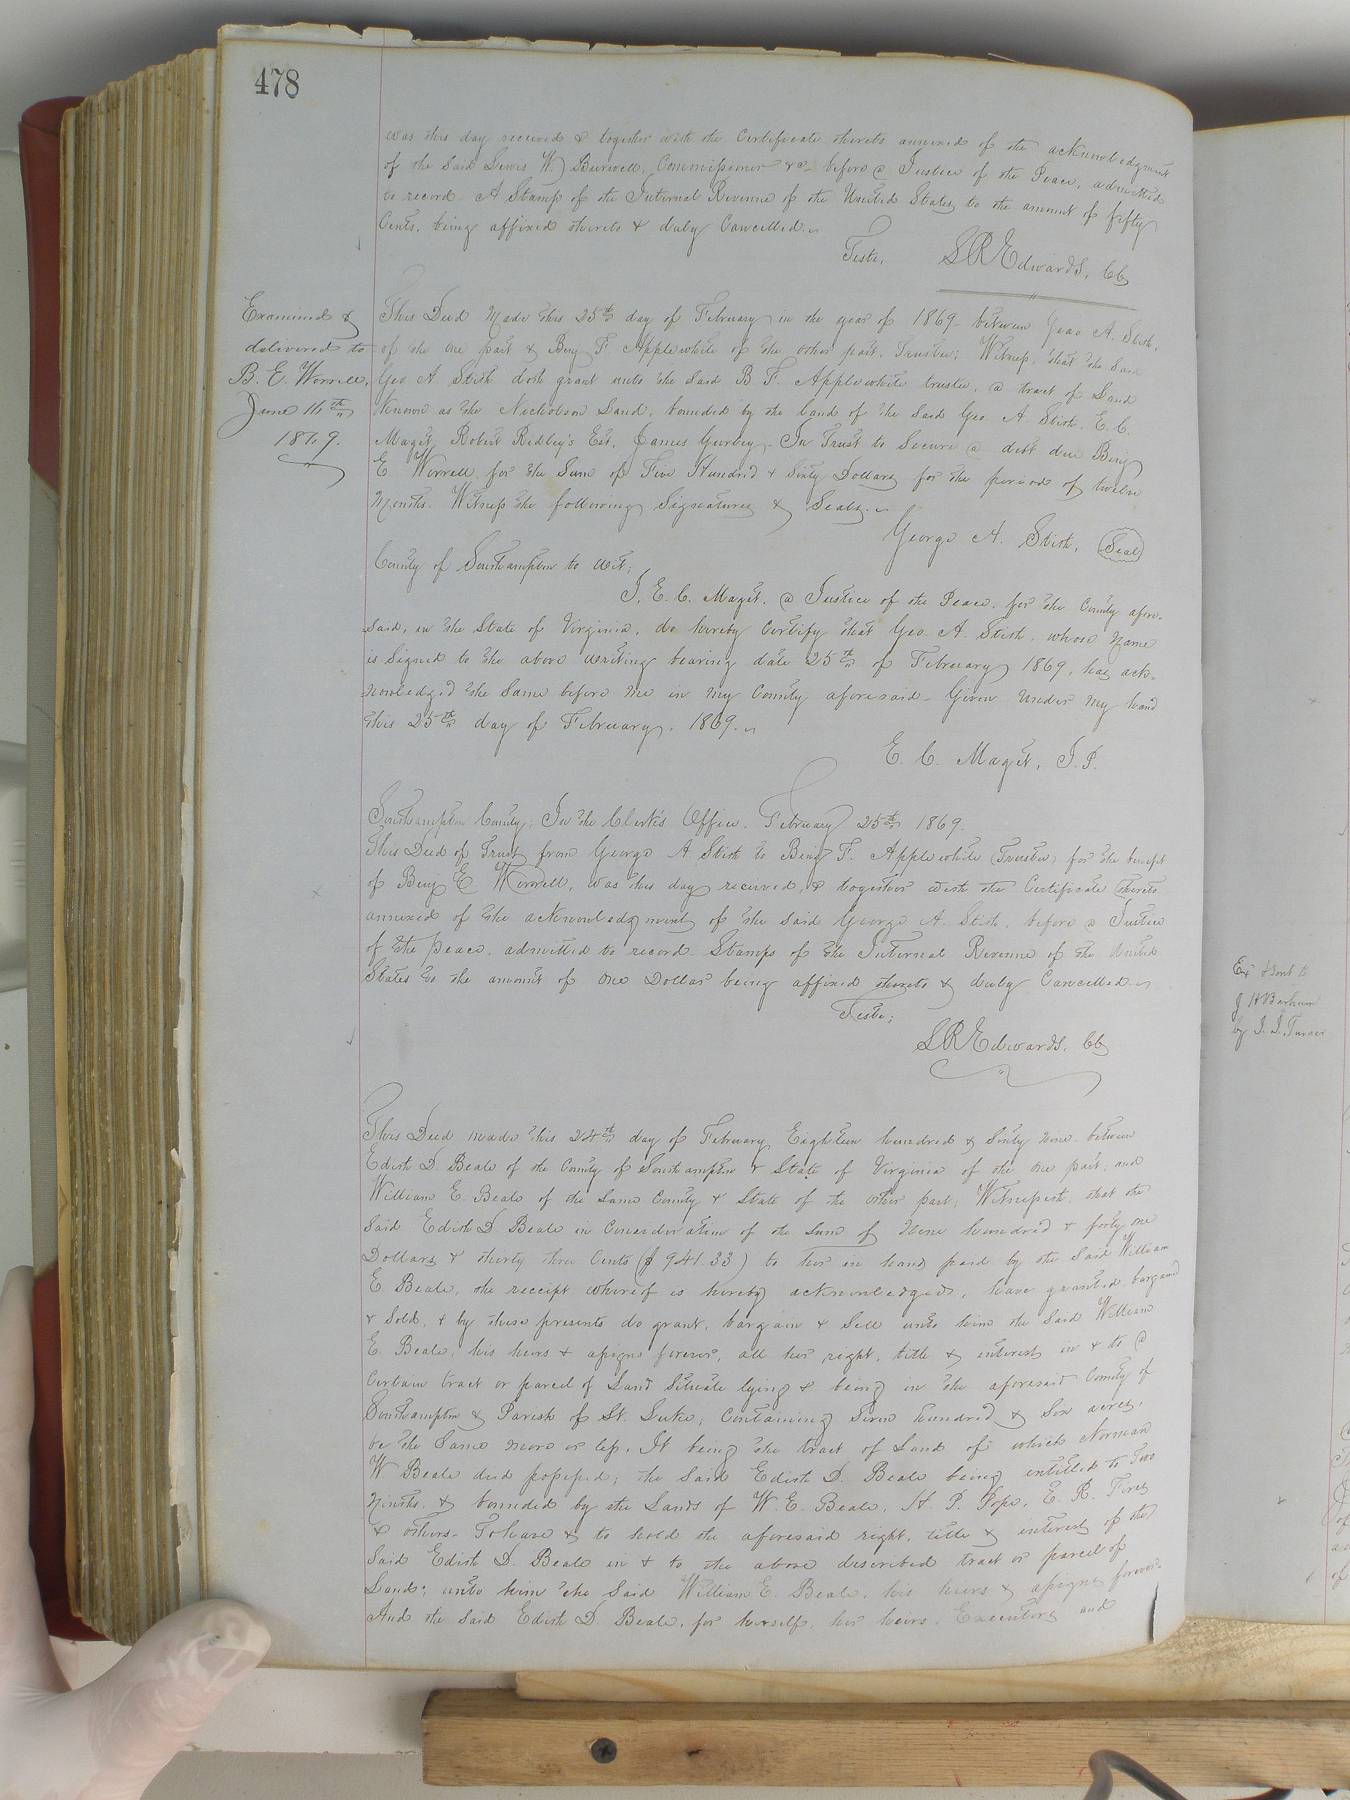 478
was this day received & together with the Certificate thereto annexed of the acknowledgment
of the said Lewis W. Burwell, Commissioner &c- before a Justice of the Peace, admitted
to record. A Stamp of the Internal Revenue of the United States to the amount of fifty
Cents, being affixed thereto & duly Cancelled.
Teste,
S R Edwards, CC
Examined &
delivered to
B. E. Worrell,
June 16th
1879.
This Deed made this 25th day of February in the year of 1869- between Geo A. Stith,
of the one part & Benj F Applewhite of the other part, Trustee; Witness, that the said
Geo A. Stith doth grant unto the said B. F. Applewhite trustee, a tract of Land
known as the Nicholson Land, bounded by the land of the said Geo A Stith, E. C.
Maget, Robert Ridley's Est, James Gurley- In Trust to Secure a debt due Benj
E Worrell for the Sum of Five Hundred & Sixty Dollars for the period of twelve
Months. Witness the following Signatures & Seals.
George A. Stith, Seal
County of Southampton to wit;
I, E. C. Maget, a Justice of the Peace, for the County afore-
said, in the State of Virginia, do hereby Certify that Geo. A. Stith, whose name
is Signed to the above writing bearing date 25th of February 1869, has ack-
nowledged the Same before me in my County aforesaid- Given under my hand
this 25th day of February. 1869.
E. C. Maget, J.P.
Southampton County; In the Clerk's Office. February 25th 1869.
This Deed of Trust from George A Stith to Benj F. Applewhite (Trustee) for the benefit
of Benj E Worrell, was this day received, & together with the Certificate thereto
annexed of the acknowledgment of the said George A. Stith, before a Justice
of the peace, admitted to record. Stamps of the Internal Revenue of the United
States to the amount of one Dollar being affixed thereto & duly Cancelled.
Teste;
S R Edwards, CC
This Deed made this 24th day of February Eighteen hundred & Sixty nine between
Edith D. Beale of the County of Southampton & State of Virginia of the one part, and
William E. Beale of the Same County & State of the other part, Witnesseth; that the
Said Edith D Beale in Consideration of the Sum of Nine hundred & forty one
Dollars & thirty three Cents ($941.33) to her in hand paid by the Said William
E. Beale, the receipt whereof is hereby acknowledged, have granted bargained
& Sold, & by these presents do grant, bargain & Sell unto him the Said William
E. Beale, his heirs & assigns forever, all her right, title & interest in & to a
Certain tract or parcel of Land Situate lying & being in the aforesaid County of
Southampton & Parish of St. Luke, Containing Seven hundred & Six acres,
be the Same more or less. It being the tract of Land of which Norman
W Beale died possessed; the Said Edith D. Beale being entitled to Two
Ninths, & bounded by the Lands of W. E. Beale, H. P. Pope, E. R.
& others- To have & to hold the aforesaid right, title & interest of the
Said Edith D. Beale in & to the above described tract or parcel of
Land; unto him the Said William E. Beale, his heirs & assigns forever.
And the Said Edith D. Beale, for herself, her heirs, Executors and
J H Barham
by J. J. Turner